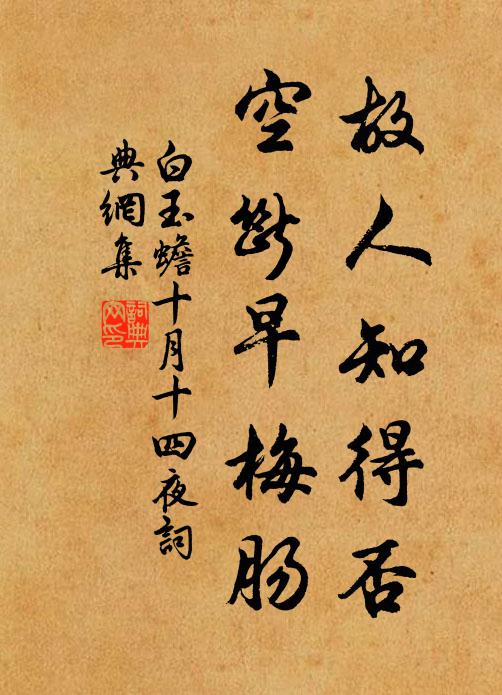 故人知得否
空断早梅肠
白玉蟾十月十四夜詞
典網集
詞典
网印